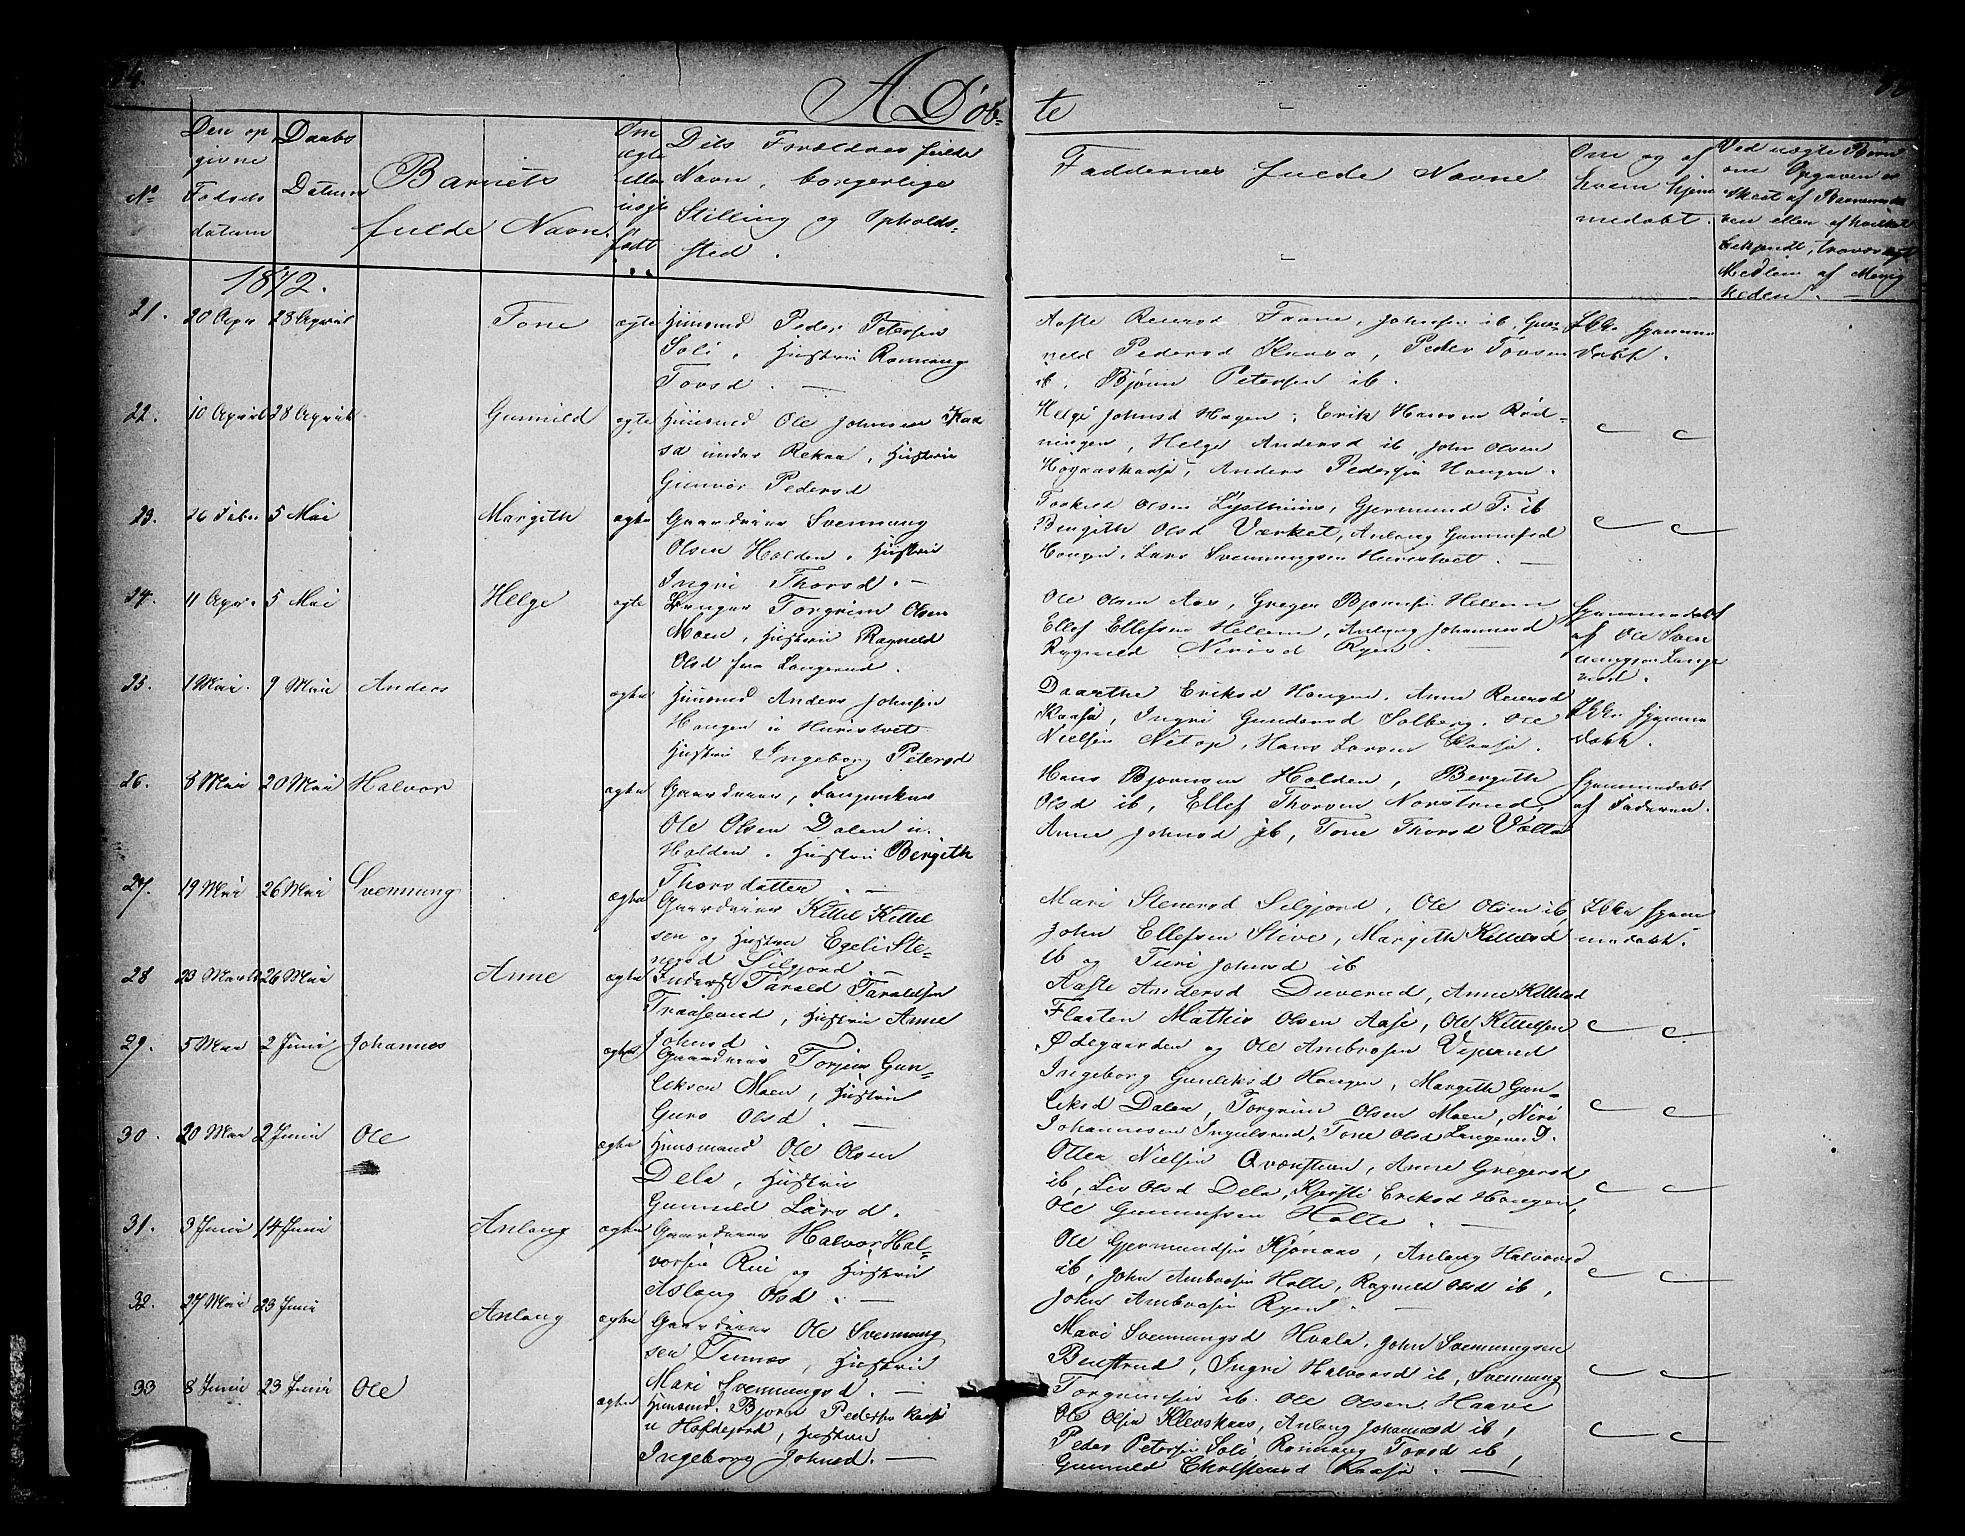 A Døb- te
Den op
givne
Fødsels
datum
Daabs
Datum
No
Barnets
fulde Navn.
Om
ægte
eller
uægte
født
Dets Forældres fulde
Navn, borgerlige
Stilling og Opholds-
sted.
Faddernes fulde Navne
Om og af
hvem hjem
medøbt.
Ved uægte Børn
om Opgaven er
skeet af
eller af hvilket
bekjendt, troværdigt
Medlem af Menig
heden.
1872.
21. 20 Apr 28 April Tone ægte Huusmd Peder Petersen
Soli, Hustru Rønnaug
Torsd. —
Aaste Reiersd Faane, Johnsen ib, Gun-
nild Pedersd Kaasa, Peder Torsen
ib. Bjørn Petersen ib.
Ikke hjemme
døbt.
22. 10 April 28 April Gunnild ægte Huusmd Ole Johnsen Kaa
sa under Rekaa, Hustru
Gunvor Pedersd
Helge Johnsd Hagen, Erik Hansen Rød-
ningen, Helge Andersd ib, John Olsen
Høgaaskaasa, Anders Pedersen Haugen.
23. 26 Febr 5 Mai Margith ægte Gaardeier Svennung
Olsen Holden, Hustru
Ingri Thorsd. —
Torkild Olsen Lysthuus, Gjermund T: ib
Bergith Olsd Værket, Anlaug Gunnufsd
Haugen, Lars Svennungsen Hurestvet. —
24. 11 Apr. 5 Mai Helge ægte Torgrim Olsen
Moen, Hustru Ragnild
Olsd fra Langerud.
Ole Olsen Aas, Greger Bjørnsen Hellem
Ellef Ellefsen Hellem, Anlaug Johannesd
Ragnild Nirisd Ryen. —
Hjemmedøbt
af Ole Sven
nungsen Lange
rud.
25. 1 Mai. 9 Mai Anders ægte Huusmd Anders Johnsen
Haugen u Hurestvet
Hustru Ingeborg Petersd
Daarthe Eriksd Haugen, Anne Reiersd
Kaasa, Ingri Gundersd Solberg, Ole
Nielsen Netop, Hans Larsen Kaasa.
Ikke hjemme
døbt.
26. 8 Mai 20 Mai Halvor ægte Gaardeier,
Ole Olsen Dalen u.
Holden, Hustru Bergith
Thorsdatter. —
Hans Bjørnsen Holden, Bergith
Olsd ib, Ellef Thorsen Norstrud,
Anne Johnsd ib, Tone Thorsd Valla
Hjemmedøbt
af Faderen.
27. 19 Mai 26 Mai Svennung ægte Gaardeier Kittel Kittel
sen og Hustru Egeli Ste-
nersd Silgjord. —
Mari Stenersd Silgjord, Ole Olsen ib,
John Ellefsen Stive, Margith Kittelsd
ib og Turi Johnsd ib
Ikke hjem
medøbt.
28 23 Marts 26 Mai Anne ægte Inderst Tarald Taraldsen
Traaserud, Hustru Anne
Johnsd
Aaste Andersd Duverud, Anne Kittelsd
Flaaten Mathis Olsen Aase, Ole Kittelsen
Ødegaarden og Ole Ambrosen Viperud
29. 5 Mai 2 Juni Johannes ægte Gaardeier Torjus Gun-
leksen Moen, Hustru
Guro Olsd. —
Ingeborg Gunleksd Haugen, Margith Gun-
leksd Dalen, Torgrim Olsen Moen, Niri
Johannesen Ingulsrud, Tone Olsd Langerud.
30. 20 Mai 2 Juni Ole ægte Huusmand Ole Olsen
Dela, Hustru
Gunnild Larsd.
Otter Nielsen Qvernstuen, Anne Gregersd
ib, Liv Olsd Dela, Kjersti Eriksd Haugen,
Ole Gunnufsen Holte. —
31. 3 Juni 14 Juni Anlaug ægte Gaardeier Halvor Hal-
vorsen Rui og Hustru
Aslaug Olsd. —
Ole Gjermundsen Kjønaas, Anlaug Halvorsd
ib, John Ambrosen Holte, Ragnild Olsd ib,
John Ambrosen Ryen. —
32. 27 Mai 23 Juni Anlaug ægte Gaardeier Ole Svennung
sen Tunnes, Hustru
Mari Svennungsd. —
Mari Svennungsd Hvala, John Svennungsen
Benstrud, Ingri Halvorsd ib, Svennung
Torgrimsen ib. Ole Olsen Haave
33 8 Juni 23 Juni Ole ægte Huusmd. Bjørn Pedersen Kaasa
u Høfdejord, Hustru
Ingeborg Johnsd. —
Ole Olsen Klevskaas, Anlaug Johannesd ib,
Peder Petersen Soli, Rønnaug Torsd ib,
Gunnild Kaasa. —